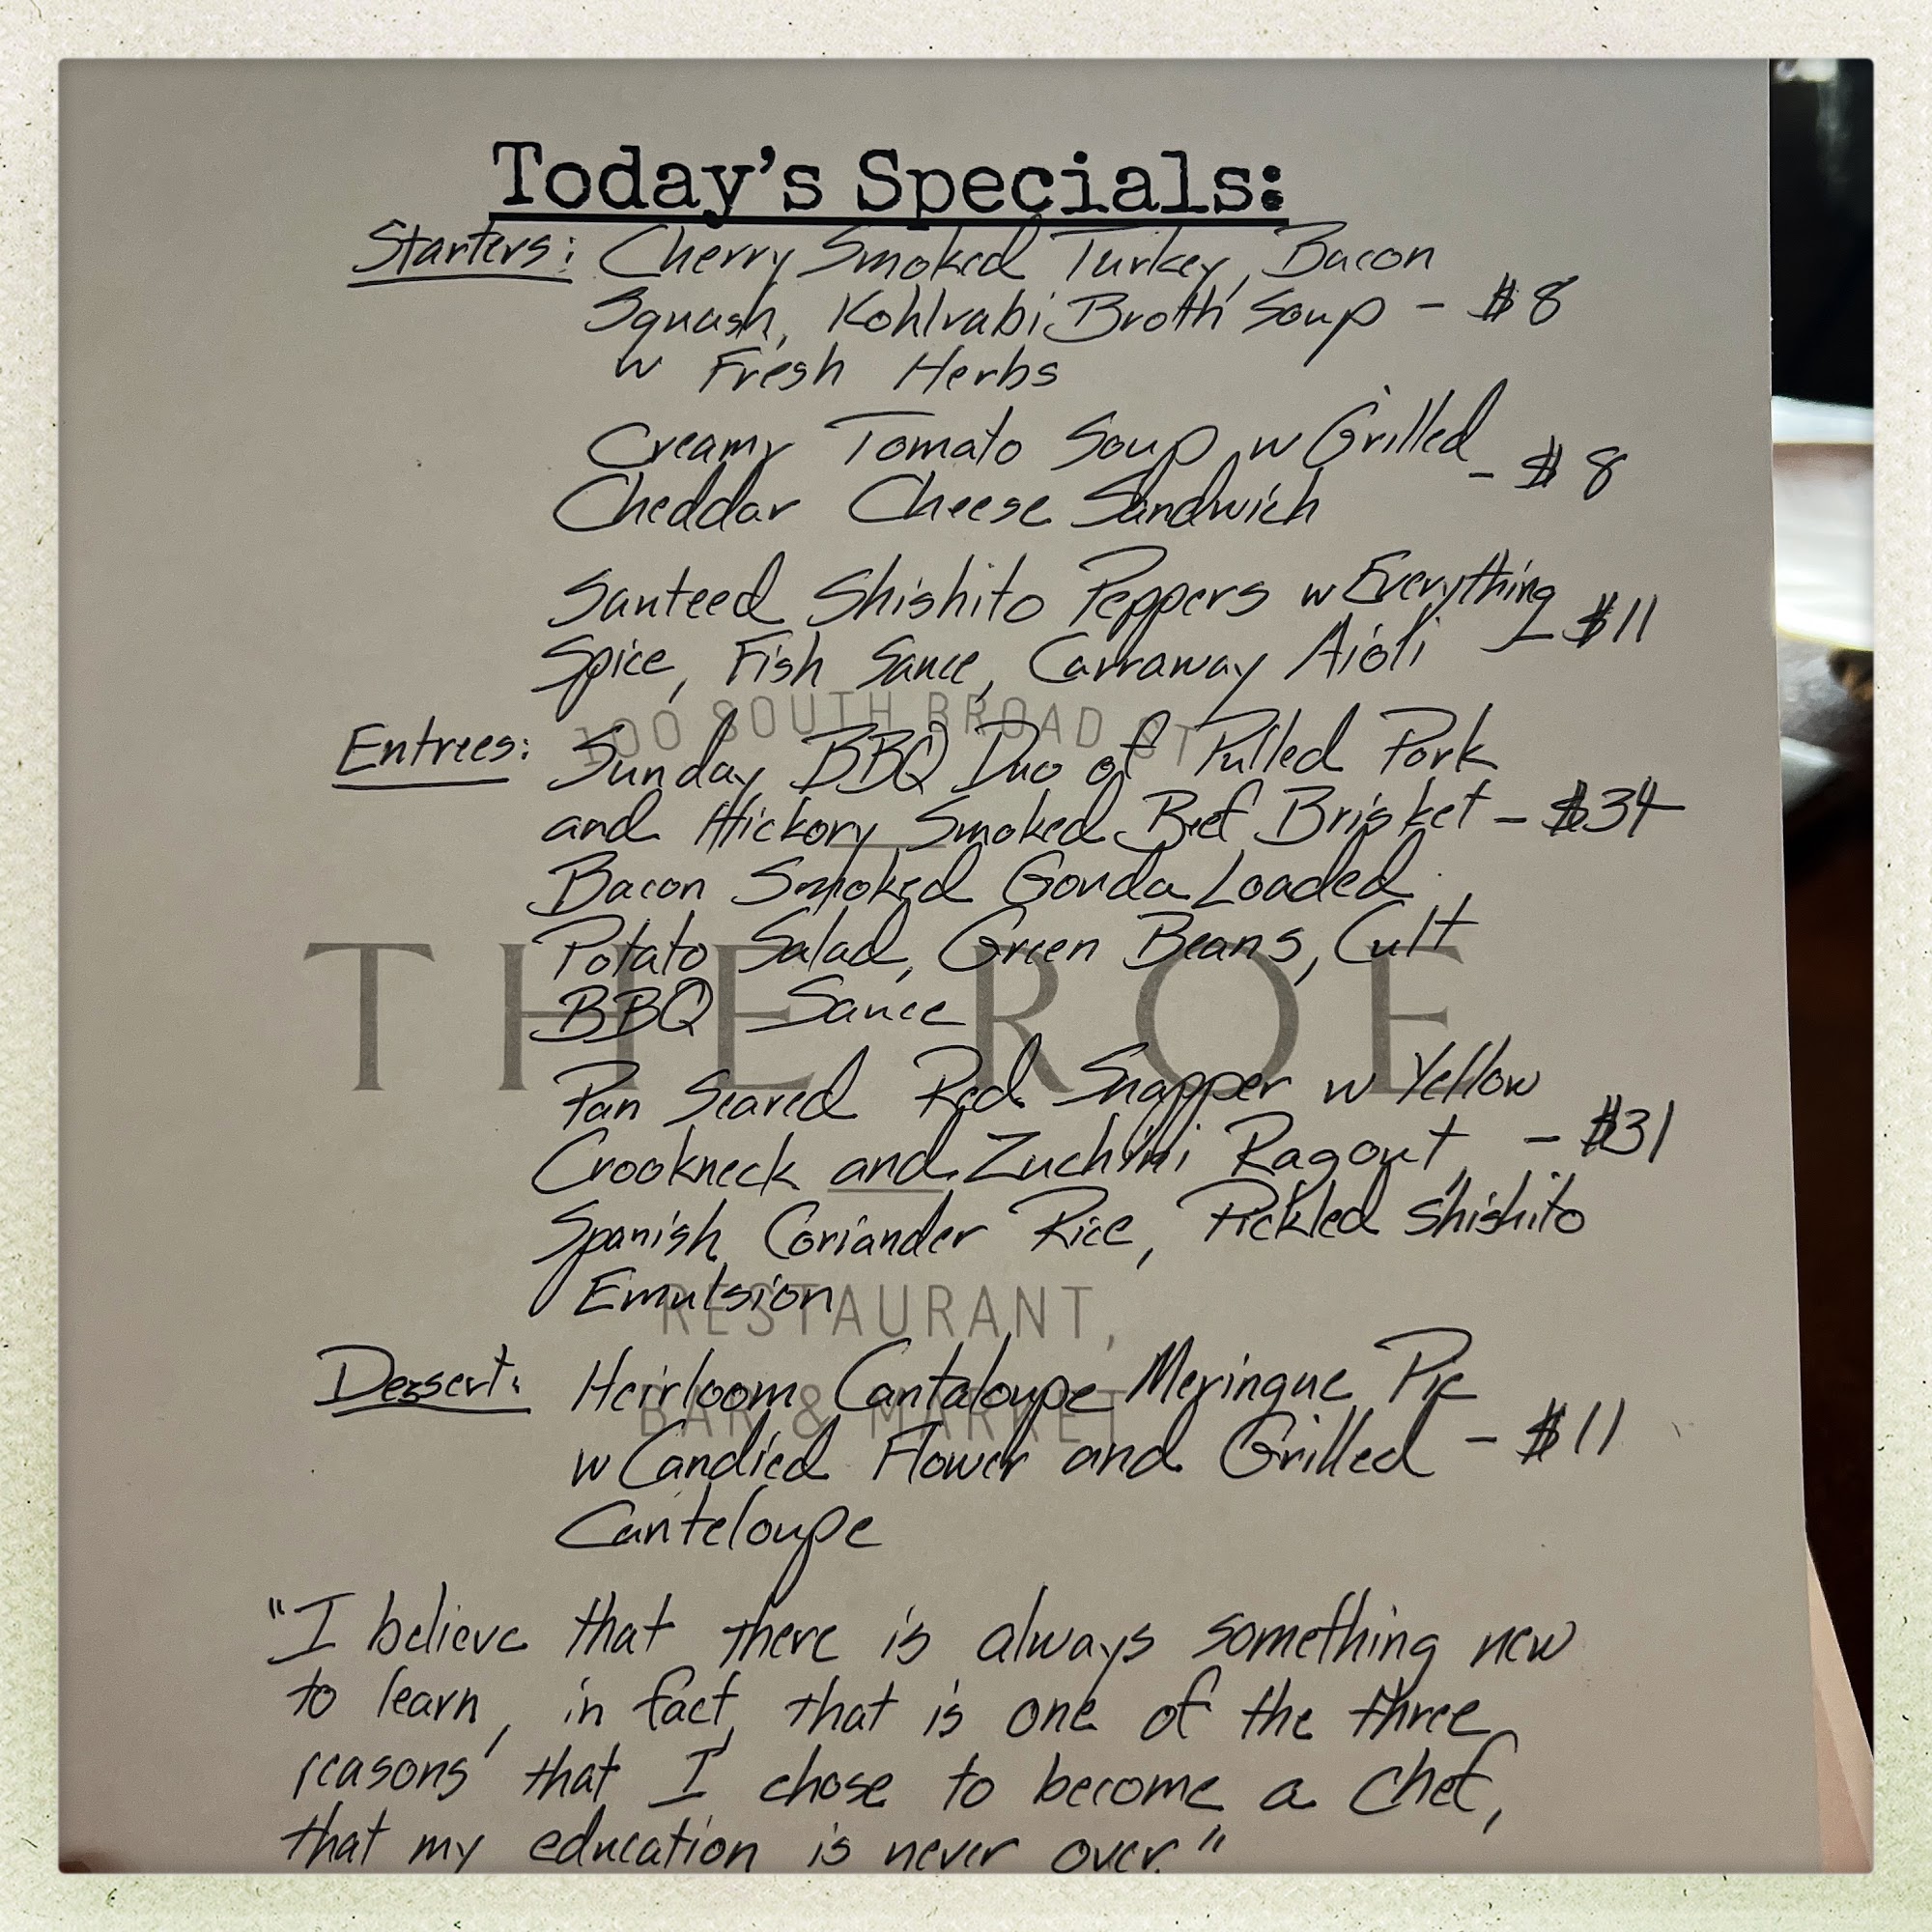 Today's Specials:
Starters: Cherry Smoked Turkey, Bacon
Squash, Kohlrabi Broth Soup - $8
w Fresh Herbs
Creamy Tomato Soup w Grilled
Cheddar Cheese Sandwich - $8
Sauteed Shishito Peppers w Everything
Spice, Fish Sauce, Carraway Aioli - $11
100 SOUTH BROAD ST
Entrees: Sunday BBQ Duo of Pulled Pork
and Hickory Smoked Beef Brisket - $34
Bacon Smoked Gouda Loaded
Potato Salad, Green Beans, Cult
THE ROE
BBQ Sauce
Pan Seared Red Snapper w Yellow
Crookneck and Zuchini Ragout, - $31
Spanish Coriander Rice, Pickled Shishito
Emulsion
RESTAURANT,
Dessert: Heirloom Cantaloupe Meringue Pie
BAR & MARKET
w Candied Flower and Grilled - $11
Canteloupe
"I believe that there is always something new
to learn, in fact, that is one of the three
reasons that I chose to become a chef,
that my education is never over."